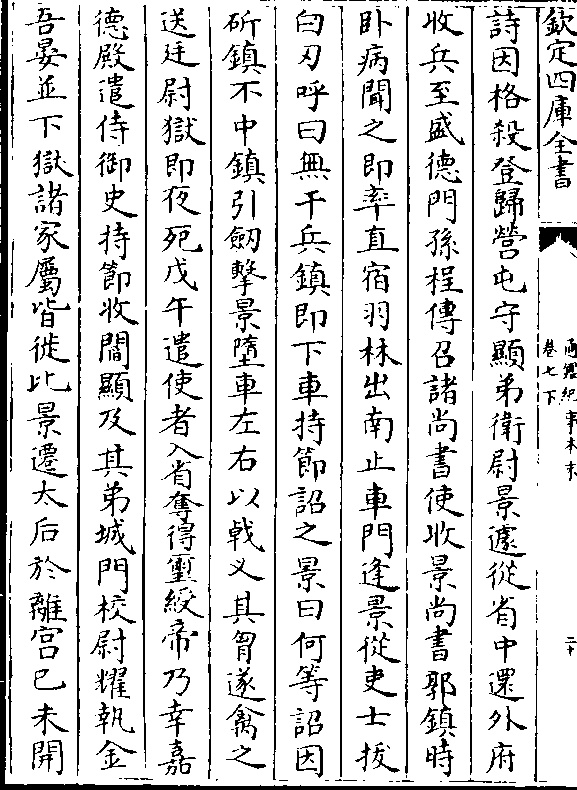 欽定四庫全書
通鑑紀事本末
卷七下
二十
詩因格殺登歸營屯守顯弟衛尉景遽從省中還外府
收兵至盛德門孫程傳召諸尚書使收景尚書郭鎮時
卧病聞之即率直宿羽林出南止車門逢景從吏士拔
白刃呼曰無干兵鎮即下車持節詔之景曰何等詔因
斫鎮不中鎮引劒擊景墮車左右以㦸义其胷遂禽之
送廷尉獄即夜死戊午遣使者入省奪得璽綬帝乃幸嘉
德殿遣侍御史持節收閻顯及其弟城門校尉耀執金
吾晏並下獄諸家屬皆徙比景遷太后於離宫己未開